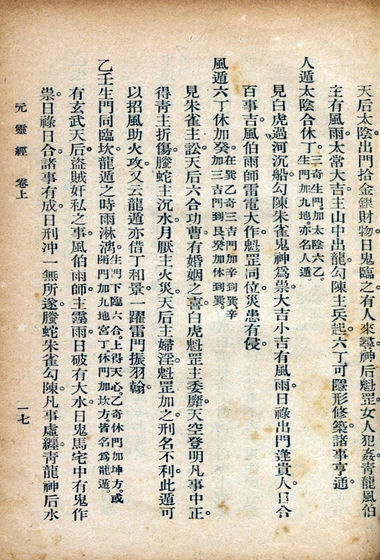 天后太陰出門拾金銀財物日鬼臨之有人來尋神后魁罡女人犯姦青龍風伯
主有風雨太常大吉主山中出龍勾陳主兵起六丁可隱形修築諸事亨通
人遁太陰合休丁三奇生門加太陰六乙生門加九地亦名人遁
見白虎過河沉船勾陳朱雀鬼神爲祟大吉小吉有風雨日祿出門逢貴人日合
百事吉風伯雨師雷電大作魁罡同位災患有侵
風遁六丁休加癸在巽乙奇三吉門加辛到巽辛加三吉門到艮癸加休到巽
見朱雀主訟天后六合功曹有婚姻之喜白虎魁罡主委靡天空登明凡事中正
得青主折傷螣蛇主沉水月厭主火災天后主婦淫魁罡加之刑名不利此遁可
以招風助火攻又云龍遁亦借丁和景一躍雷門振羽翰
乙壬生門同臨坎龍遁之時雨淋漓生門下臨六合上得天心乙奇休門加坤方或開門加九地宮丁休門加坎方皆名爲龍遁
有玄武天后盜賊奸私之事風伯雨師主霧雨日破有大水日鬼馬宅中有鬼作
祟日祿日合諸事有成日刑沖一無所遂螣蛇朱雀勾陳凡事虛纏青龍神后水
元靈經 卷上
一七